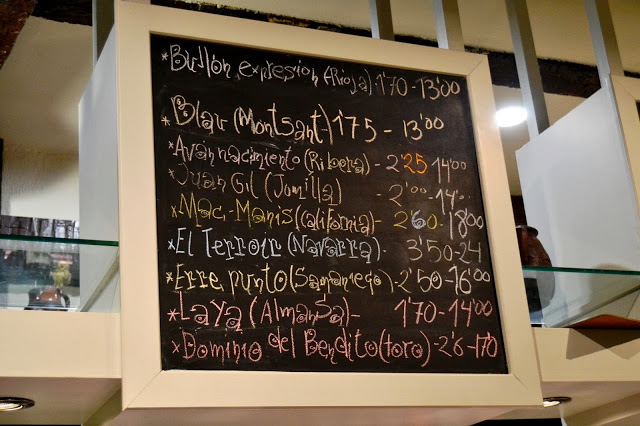 *Bullón expresion (Rioja)·1'70-13'00
*Blau (Montsant) 1'75 - 13'00
*Avan nacimiento (Ribera) - 2'25 14'00
*Juan Gil (Jumilla) - 2'00 - 14'
*Mac-Manis (California) - 2'60 - 18'00
*El Terroir (Navarra) - 3'50-24
*Erre punto (Samaniego) - 2'50-16'00
*Laya (Almansa) - 1'70-14'00
*Dominio del Bendito (toro) - 2'6-170